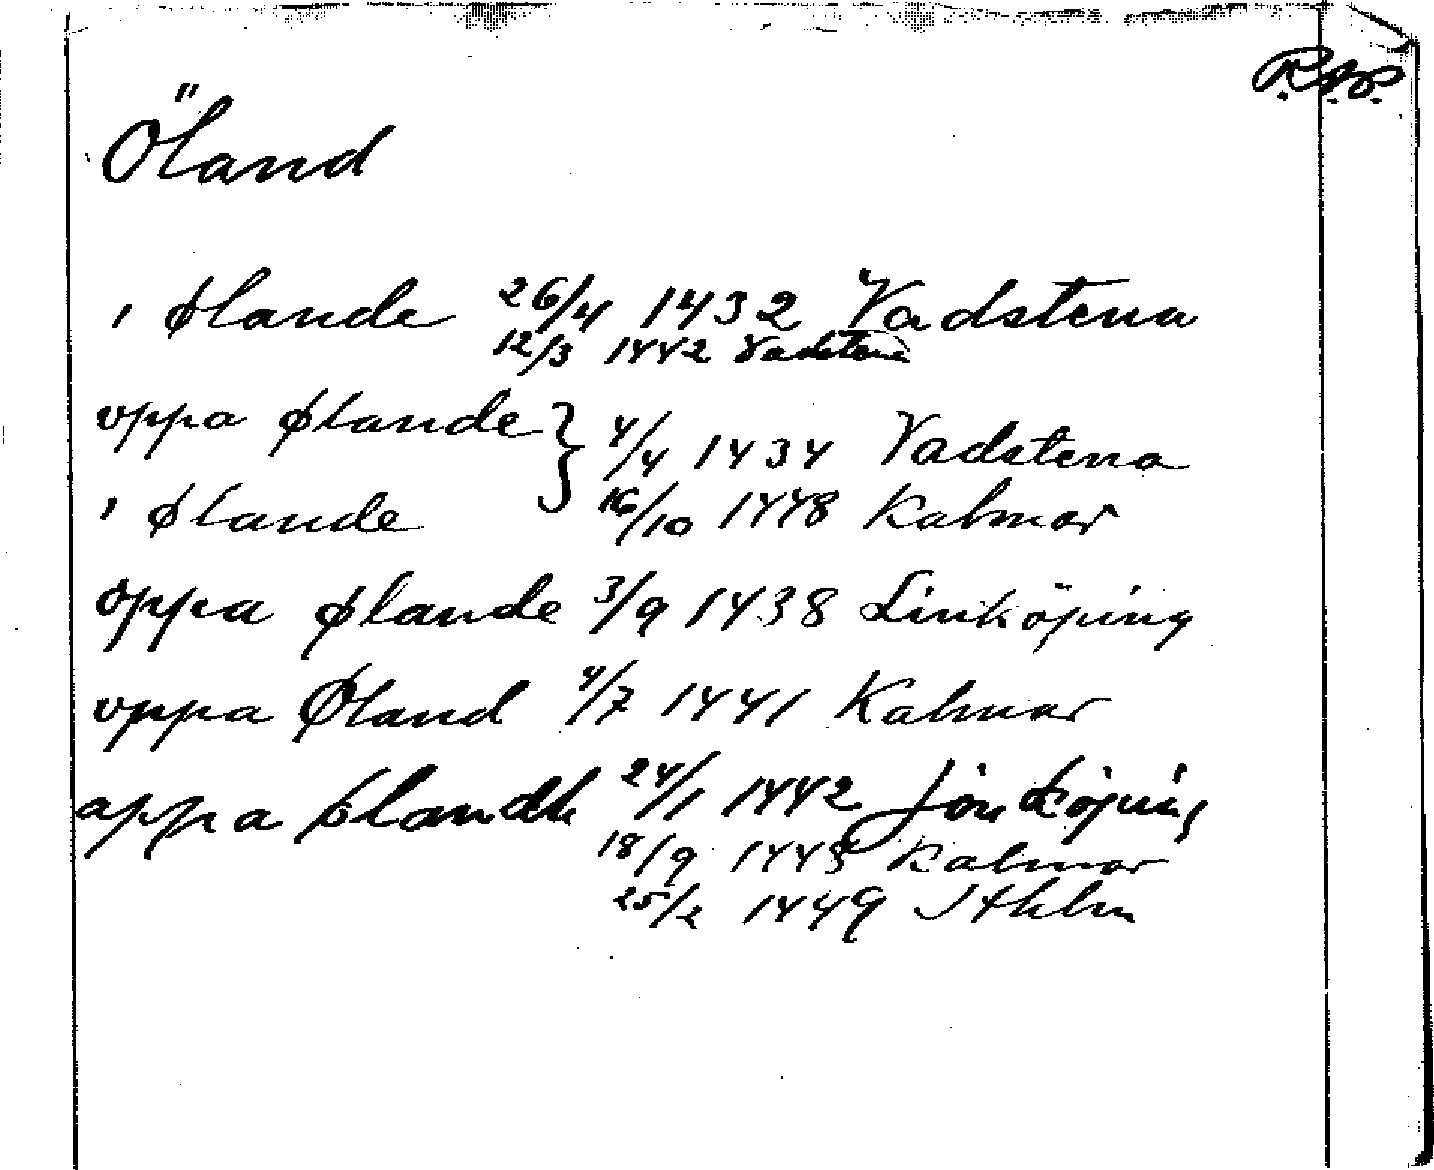 R.A.P.
Öland
i ølande 26/4 1432 Vadstena
12/3 1442 Vadstena
oppa ølande } 4/4 1434 Vadstena
i ølande 16/10 1448 Kalmar
oppa ølande 3/9 1438 Linköping
oppa Øland 4/7 1441 Kalmar
appa ølandh 24/1 1442 Jönköping
18/9 1445 Kalmar
25/2 1449 Sthlm